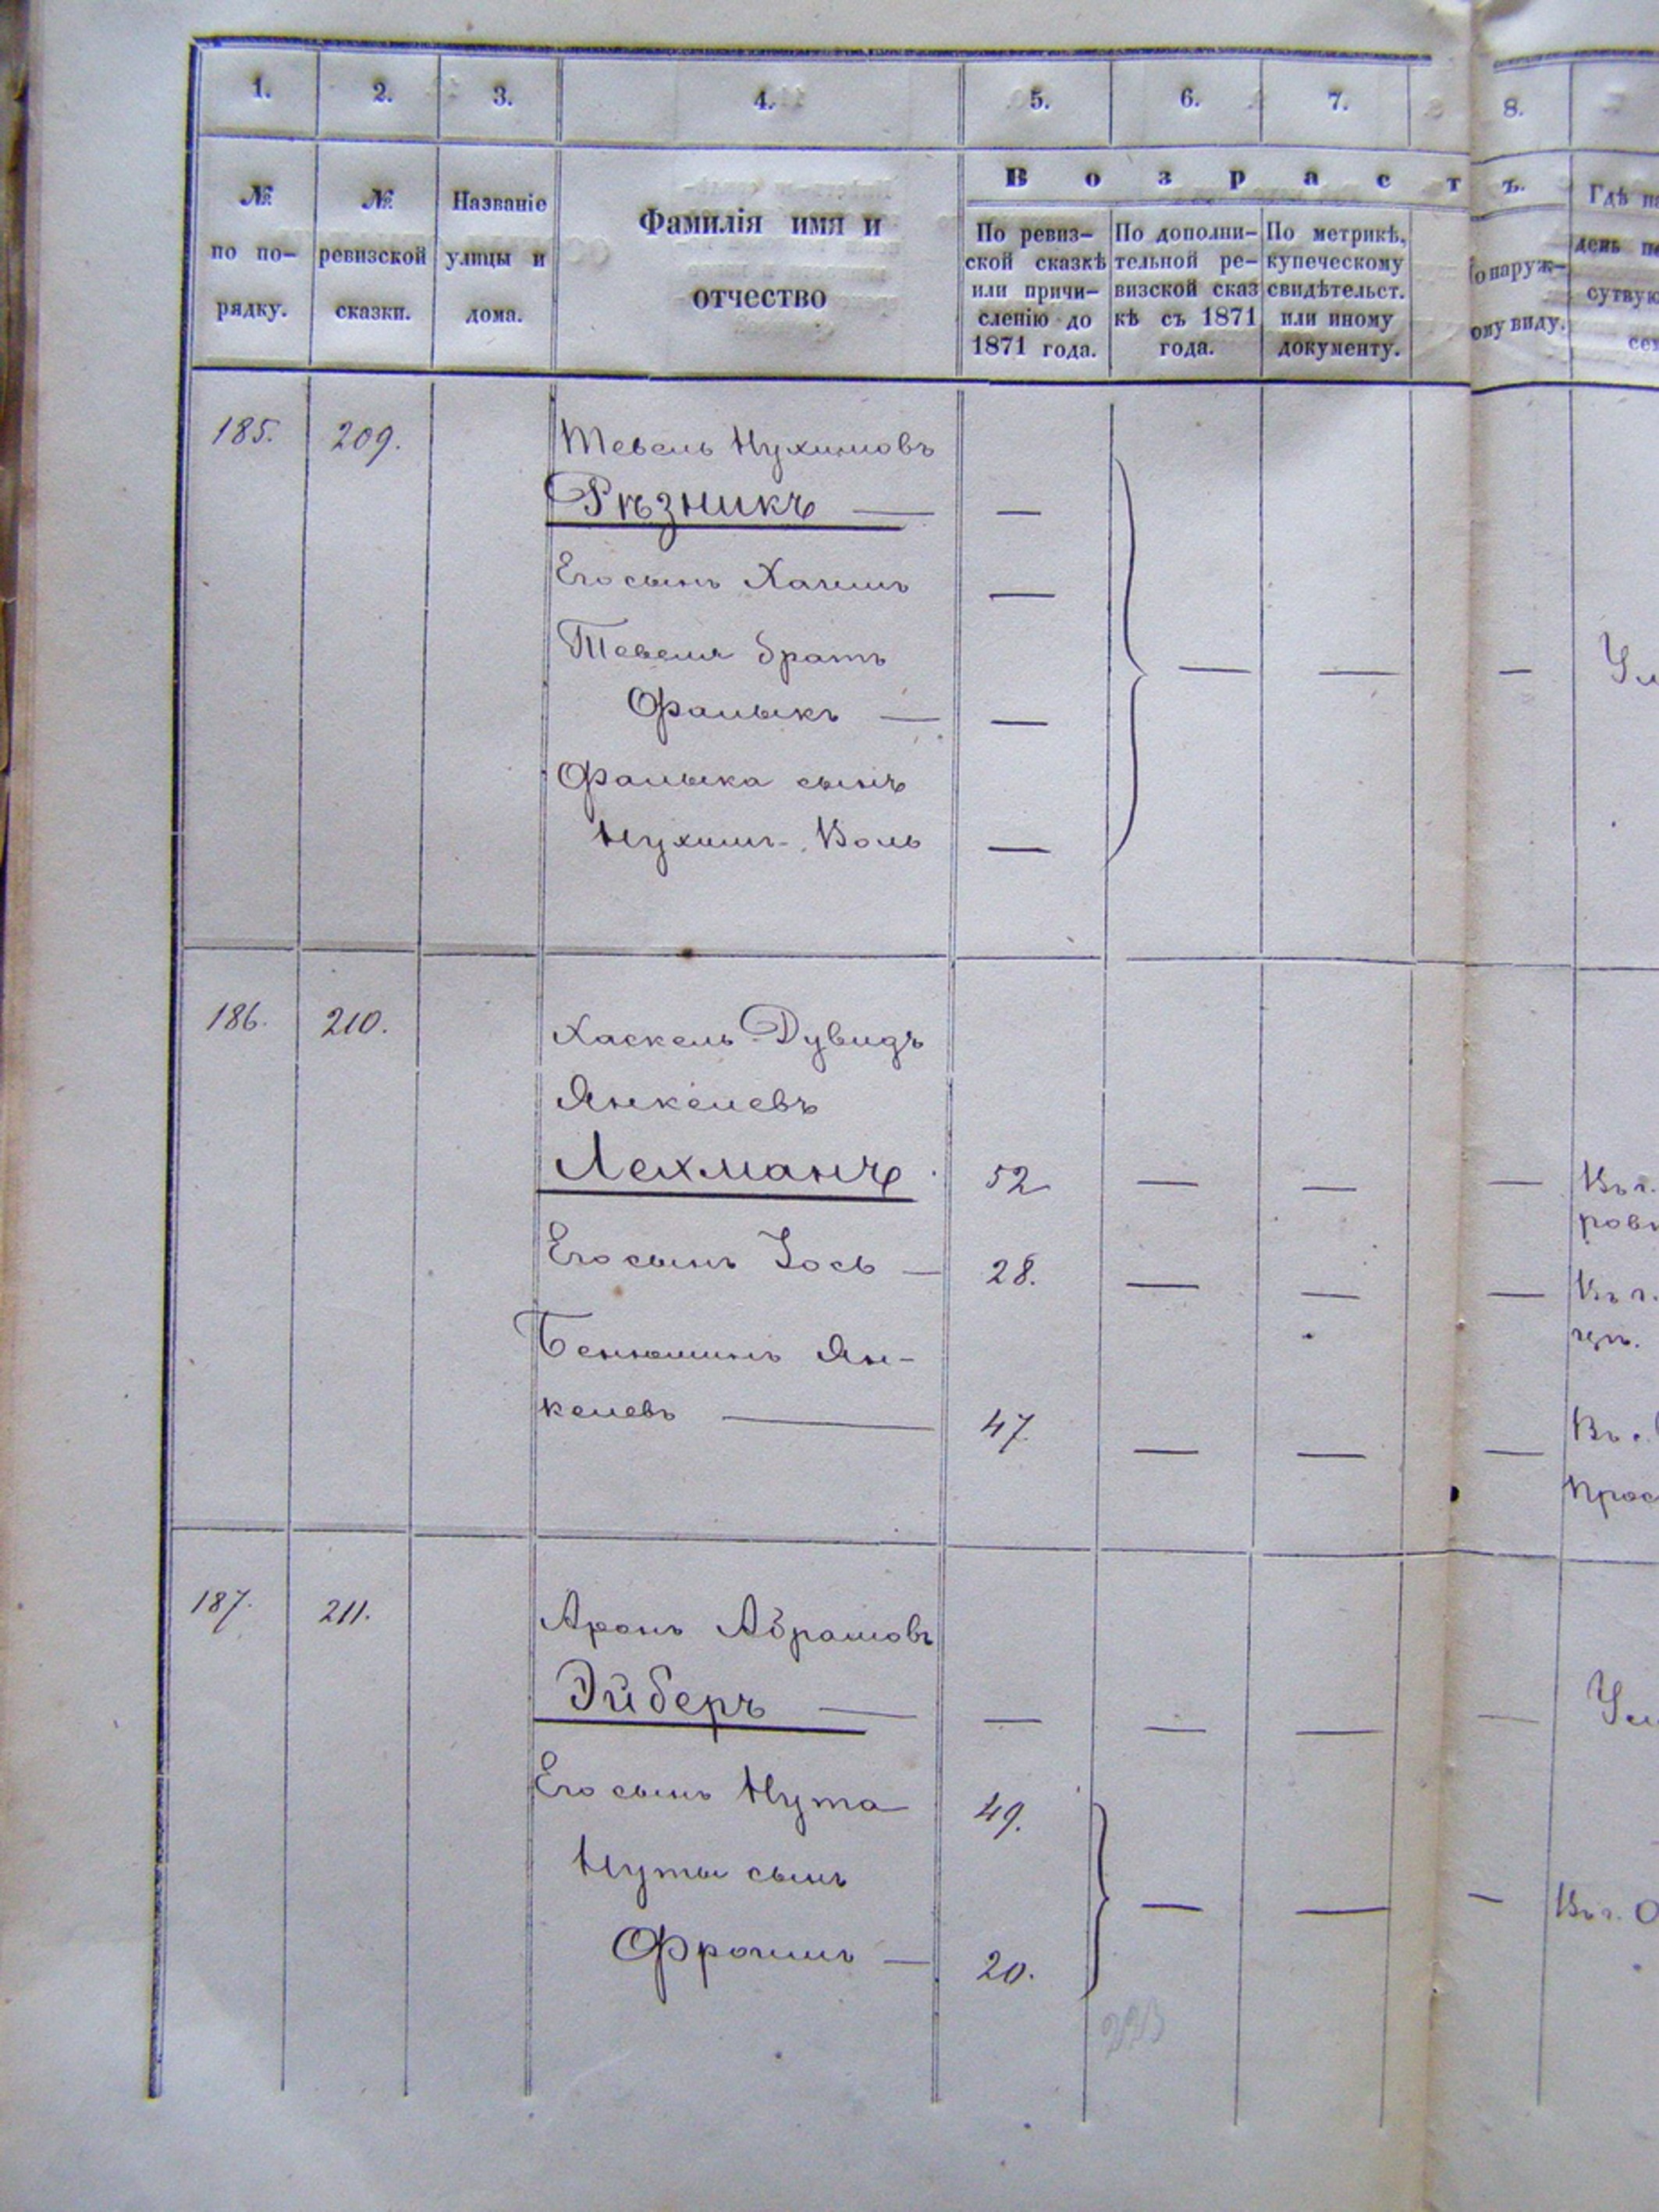 1. 2. 3. 4. 5. 6. 7. 8.
№ по по-рядку.
№ ревизской сказки.
Названіе улицы и дома.
Фамилія имя и
отчество
Возрастъ.
По ревиз-
ской сказкѣ
или причи-
сленію до
1871 года.
По дополни-
тельной ре-
визской сказ
кѣ съ 1871
года.
По метрикѣ,
купеческому
свидѣтельст.
или иному
документу.
о наруж-
ому виду.
Гдѣ на
день п
сутвую
сем
185. 209. Тевель Нухимовъ
Рѣзникъ — —
Его сынъ Хаимъ —
Тевеля братъ
Фалыкъ — —
Фалыка сынъ
Нухимъ-Воль —
186. 210. Хаскель-Дувидъ
Янкелевъ
Лехманъ 52 — — — Въ г.
ров
Его сынъ Іось — 28. — — — Въ г.
Бенюминъ Ян-
келевъ — 47 — — — Въ с.
Прос
187. 211. Аронъ Абрамовъ
Эйберъ — — — — — Ум
Его сынъ Нута 49.
Нуты сынъ
Фроимъ — 20. — — — Въ г. О